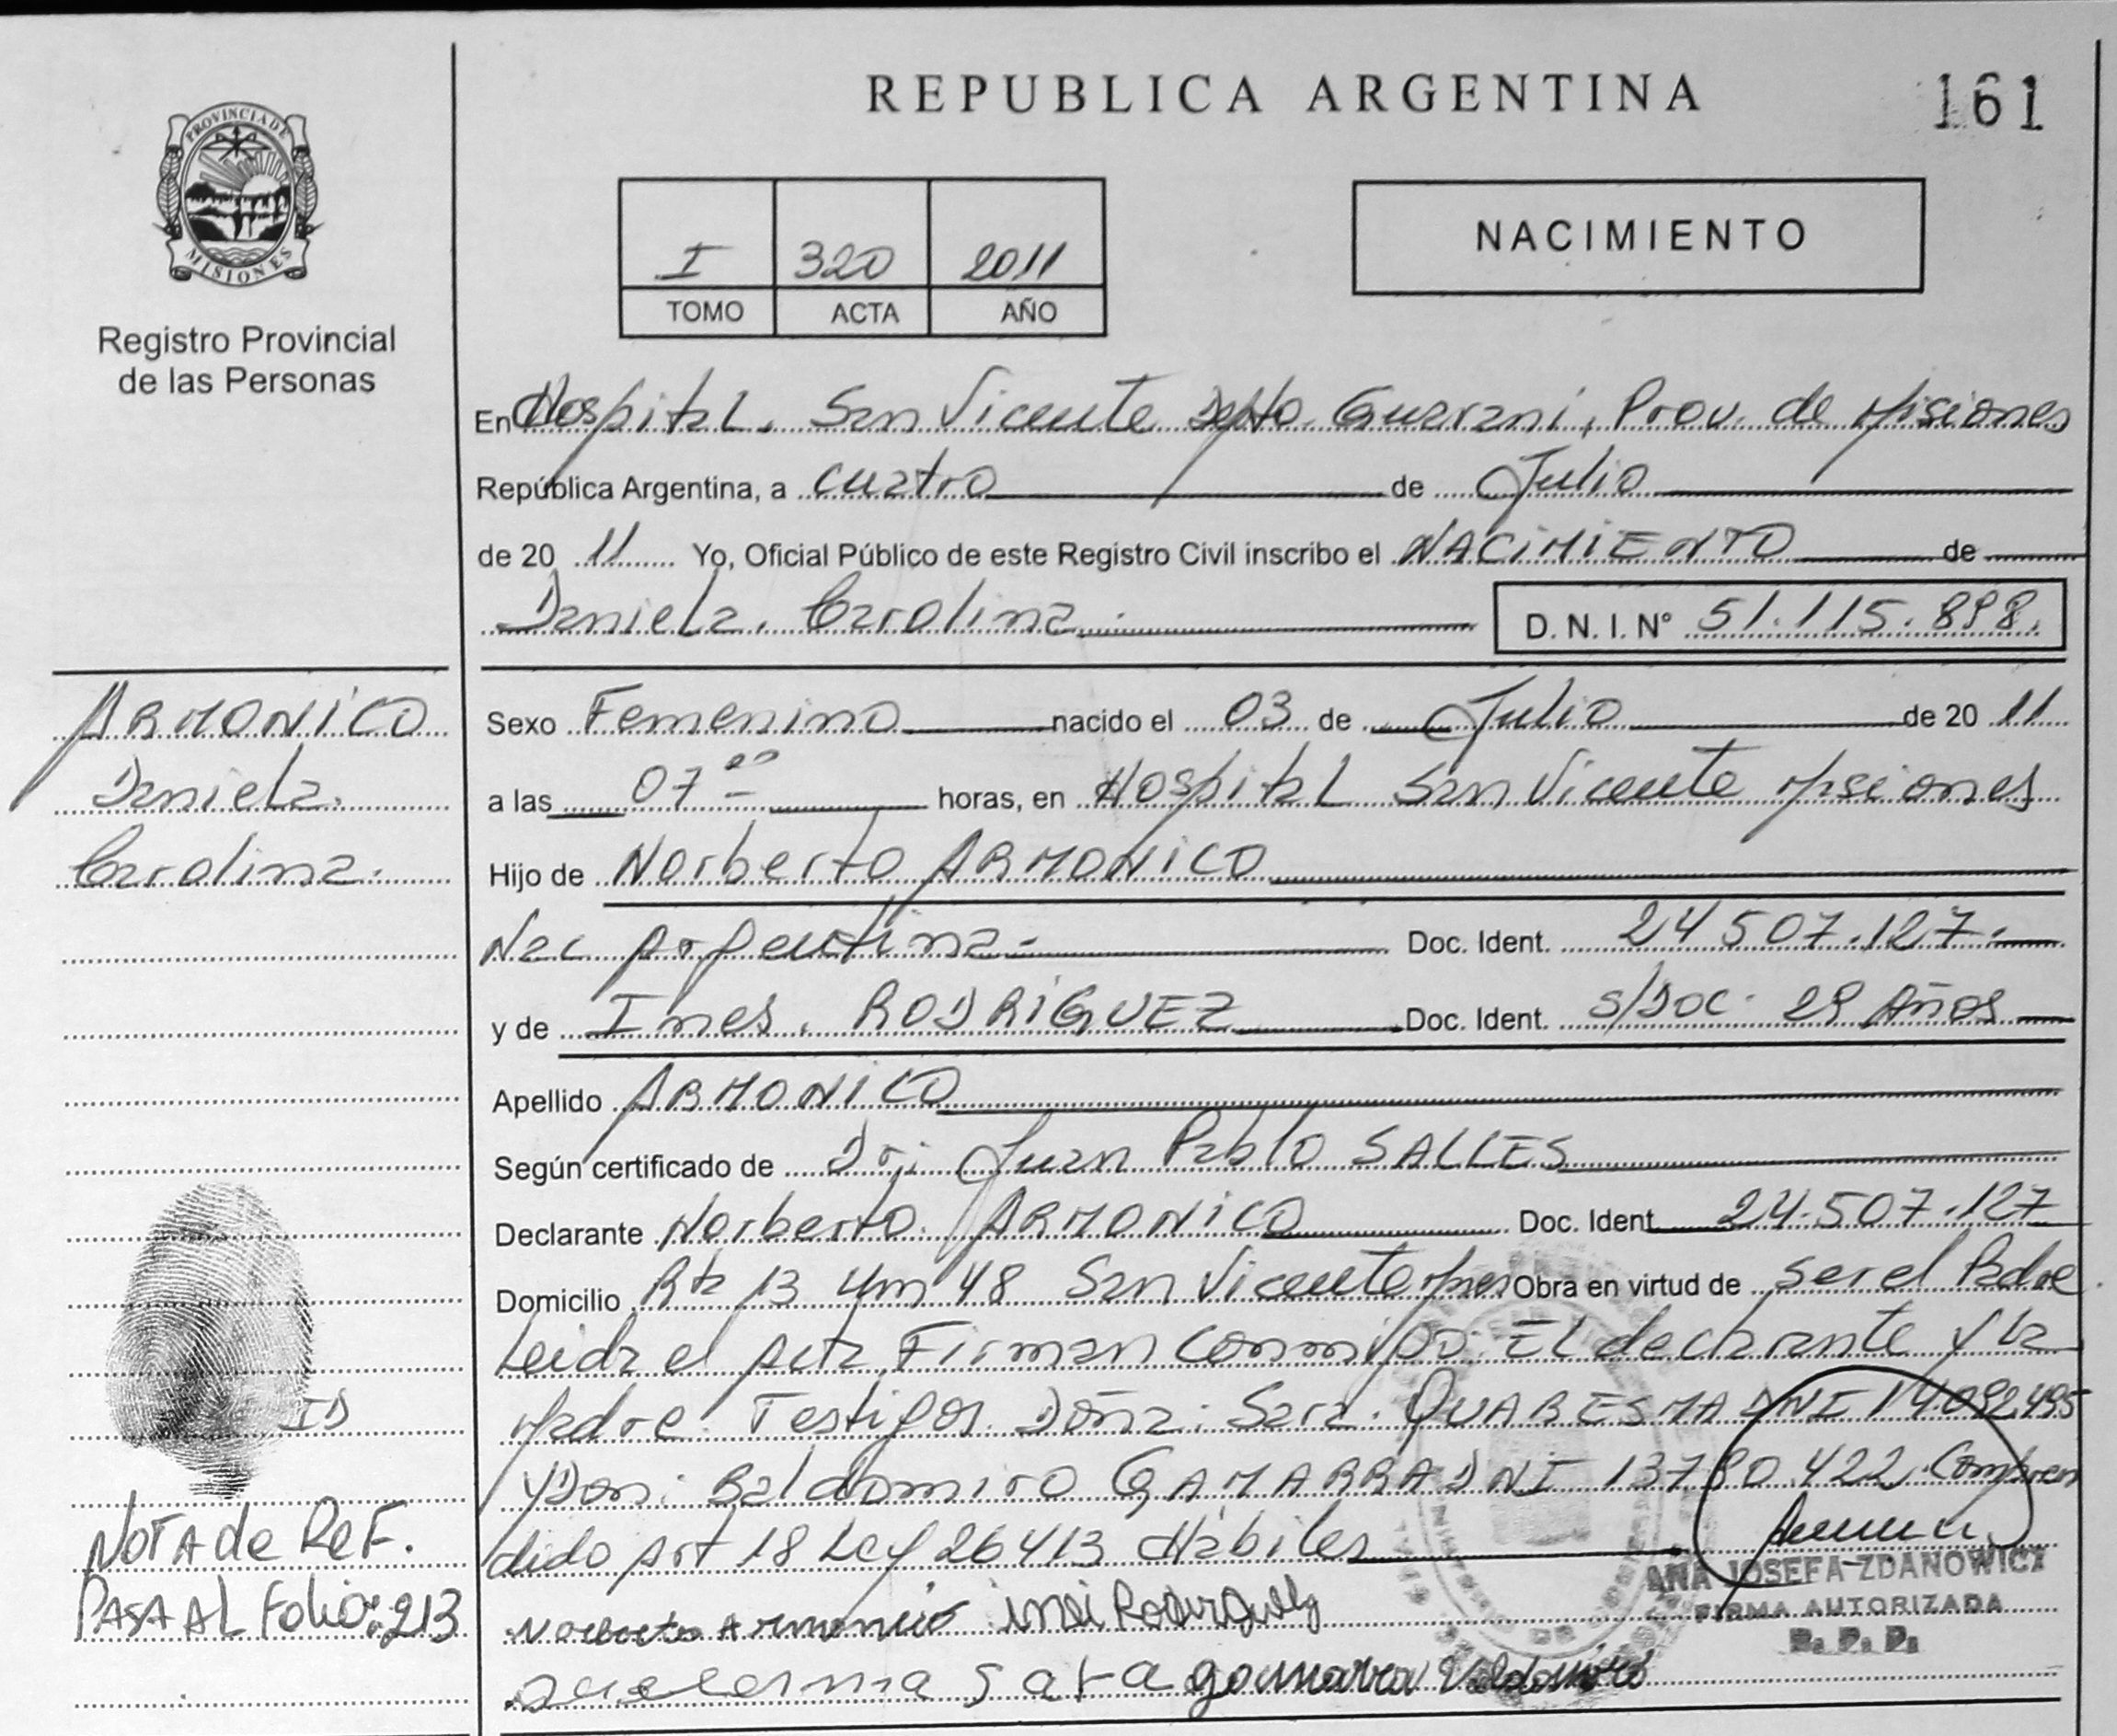 REPUBLICA ARGENTINA
161
PROVINCIA DE
MISIONES
Registro Provincial
de las Personas
I 320 2011
TOMO ACTA AÑO
NACIMIENTO
En Hospital. San Vicente Dpto. Guarani, Prov. de Misiones
República Argentina, a cuatro de Julio
de 20 11 Yo, Oficial Público de este Registro Civil inscribo el NACIMIENTO de
Daniela. Carolina. D. N. I. N° 51.115.898.
ARMONICO
Daniela.
Carolina.
Sexo Femenino nacido el 03 de Julio de 20 11
a las 07 00 horas, en Hospital San Vicente Misiones
Hijo de Norberto ARMONICO
Nac Argentina Doc. Ident. 24507.127.
y de Ines. RODRIGUEZ Doc. Ident. S/DOC. 29 Años
Apellido ARMONICO
Según certificado de Dr: Juan Pablo SALLES
Declarante Norberto. ARMONICO Doc. Ident 24.507.127
Domicilio Rta 13 Km 48 San Vicente Mnes Obra en virtud de ser el Padre.
Leida el Acta Firman conmigo: El declarante y la
Madre. Testigos Doña: Sara. QUARESMA DNI 14.092.495
y Don: Baldomiro GAMARRA DNI 13780.422. Compren
dido Art 18 Ley 26413 Habiles
ID
NOTA de ReF.
PASA AL Folio: 213
Norberto Armonico ines Rodriguez
Sara gamarra Valdomiro
ANA JOSEFA ZDANOWICZ
FIRMA AUTORIZADA
R. P. P.